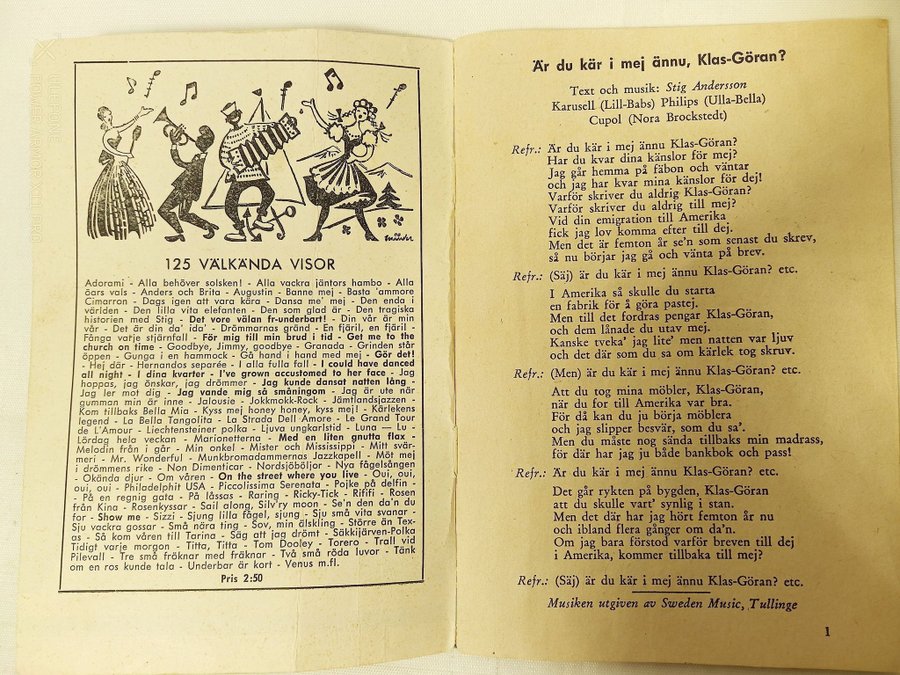 125 VÄLKÄNDA VISOR
Adorami - Alla behöver solsken! - Alla vackra jäntors hambo - Alla
åars vals - Anders och Brita - Augustin - Banne mej - Basta 'ammore
Cimarron - Dags igen att vara kära - Dansa me' mej - Den enda i
världen - Den lilla vita elefanten - Den som glad är - Den tragiska
historien med Stig - Det vore välan fr-underbart! - Din vår är min
vår - Det är din da' ida' - Drömmarnas gränd - En fjäril, en fjäril -
Fånga varje stjärnfall - För mig till min brud i tid - Get me to the
church on time - Goodbye, Jimmy, goodbye - Granada - Grinden står
öppen - Gunga i en hammock - Gå hand i hand med mej - Gör det!
- Hej där - Hernandos separée - I alla fulla fall - I could have danced
all night - I dina kvarter - I've grown accustomed to her face - Jag
hoppas, jag önskar, jag drömmer - Jag kunde dansat natten lång -
Jag ler mot dig - Jag vande mig så småningom - Jag är ute när
gumman min är inne - Jalousie - Jokkmokk-Rock - Jämtlandsjazzen -
Kom tillbaks Bella Mia - Kyss mej honey honey, kyss mej! - Kärlekens
legend - La Bella Tangolita - La Strada Dell Amore - Le Grand Tour
de L'Amour - Liechtensteiner polka - Ljuva ungkarlstid - Luna — Lu -
Lördag hela veckan - Marionetterna - Med en liten gnutta flax -
Melodin från i går - Min onkel - Mister och Mississippi - Mitt svär-
meri - Mr. Wonderful - Munkbromadammernas Jazzkapell - Möt mej
i drömmens rike - Non Dimenticar - Nordsjöböljor - Nya fågelsången
- Okända djur - Om våren - On the street where you live - Oui, oui,
oui, oui - Philadelphit USA - Piccolissima Serenata - Pojke på delfin -
- På en regnig gata - På låssas - Raring - Ricky-Tick - Rififi - Rosen
från Kina - Rosenkyssar - Sail along, Silv'ry moon - Se'n den da'n du
for - Show me - Sizzi - Sjung lilla fågel, sjung - Sju små vita svanar -
Sju vackra gossar - Små nära ting - Sov, min älskling - Större än Tex-
as - Så kom våren till Tarina - Säg att jag drömt - Säkkijärven-Polka
Tidigt varje morgon - Titta, Titta - Tom Dooley - Torero - Trall vid
Pilevall - Tre små fröknar med fräknar - Två små röda luvor - Tänk
om en ros kunde tala - Underbar är kort - Venus m.fl.
Pris 2:50
Är du kär i mej ännu, Klas-Göran?
Text och musik: Stig Andersson
Karusell (Lill-Babs) Philips (Ulla-Bella)
Cupol (Nora Brockstedt)
Refr.: Är du kär i mej ännu Klas-Göran?
Har du kvar dina känslor för mej?
Jag går hemma på fäbon och väntar
och jag har kvar mina känslor för dej!
Varför skriver du aldrig Klas-Göran?
Varför skriver du aldrig till mej?
Vid din emigration till Amerika
fick jag lov komma efter till dej.
Men det är femton år se'n som senast du skrev,
så nu börjar jag gå och vänta på brev.
Refr.: (Säj) är du kär i mej ännu Klas-Göran? etc.
I Amerika så skulle du starta
en fabrik för å göra pastej.
Men till det fordras pengar Klas-Göran,
och dem lånade du utav mej.
Kanske tveka' jag lite' men natten var ljuv
och det där som du sa om kärlek tog skruv.
Refr.: (Men) är du kär i mej ännu Klas-Göran? etc.
Att du tog mina möbler, Klas-Göran,
när du for till Amerika var bra.
För då kan du ju börja möblera
och jag slipper besvär, som du sa'.
Men du måste nog sända tillbaks min madrass,
för där har jag ju både bankbok och pass!
Refr.: Är du kär i mej ännu Klas-Göran? etc.
Det går rykten på bygden, Klas-Göran
att du skulle vart' synlig i stan.
Men det där har jag hört femton år nu
och ibland flera gånger om da'n.
Om jag bara förstod varför breven till dej
i Amerika, kommer tillbaka till mej?
Refr.: (Säj) är du kär i mej ännu Klas-Göran? etc.
Musiken utgiven av Sweden Music, Tullinge
1